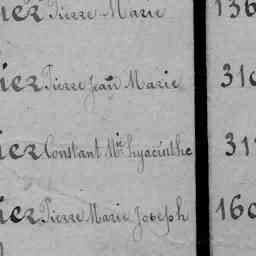 ier Pierre Marie 136
ier Pierre Jean Marie 310
ier Constant Mie hyacinthe 31
ier Pierre Marie Joseph 160